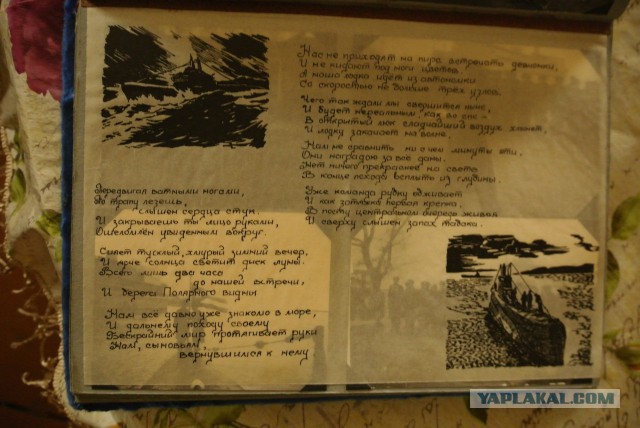 Нас не приходят на пирс встречать девчонки,
И не кидают под ноги цветов.
А наша лодка идёт из автономки
Со скоростью не больше трёх узлов.
Чего так ждали мы свершится ныне,
И будет нереальным как во сне -
В открытый люк сладчайший воздух хлынет,
И лодку закачает на волне.
Нам не сравнить ни с чем минуты эти,
Они наградою за всё даны.
Нет ничего прекраснее на свете
В конце похода всплыть из глубины.
Уже команда рубку обживает
И как затяжка первая крепка,
В посту центральном очередь живая
И сверху слышен запах табака.
Передвигая ватными ногами,
По трапу лезешь,
слышен сердца стук.
И закрываешь ты лицо руками,
Ошеломлён увиденным вокруг.
Сипет тусклый, хмурый зимний вечер,
И ярче солнца светит диск луны.
Всего лишь два часа
до нашей встречи,
И берега Полярного видны
Нам всё давно уже знакомо в море,
И дальнему походу своему
Бескрайний мир протягивает руки
Нам, сыновьям,
вернувшимся к нему
YAPLAKAL.COM